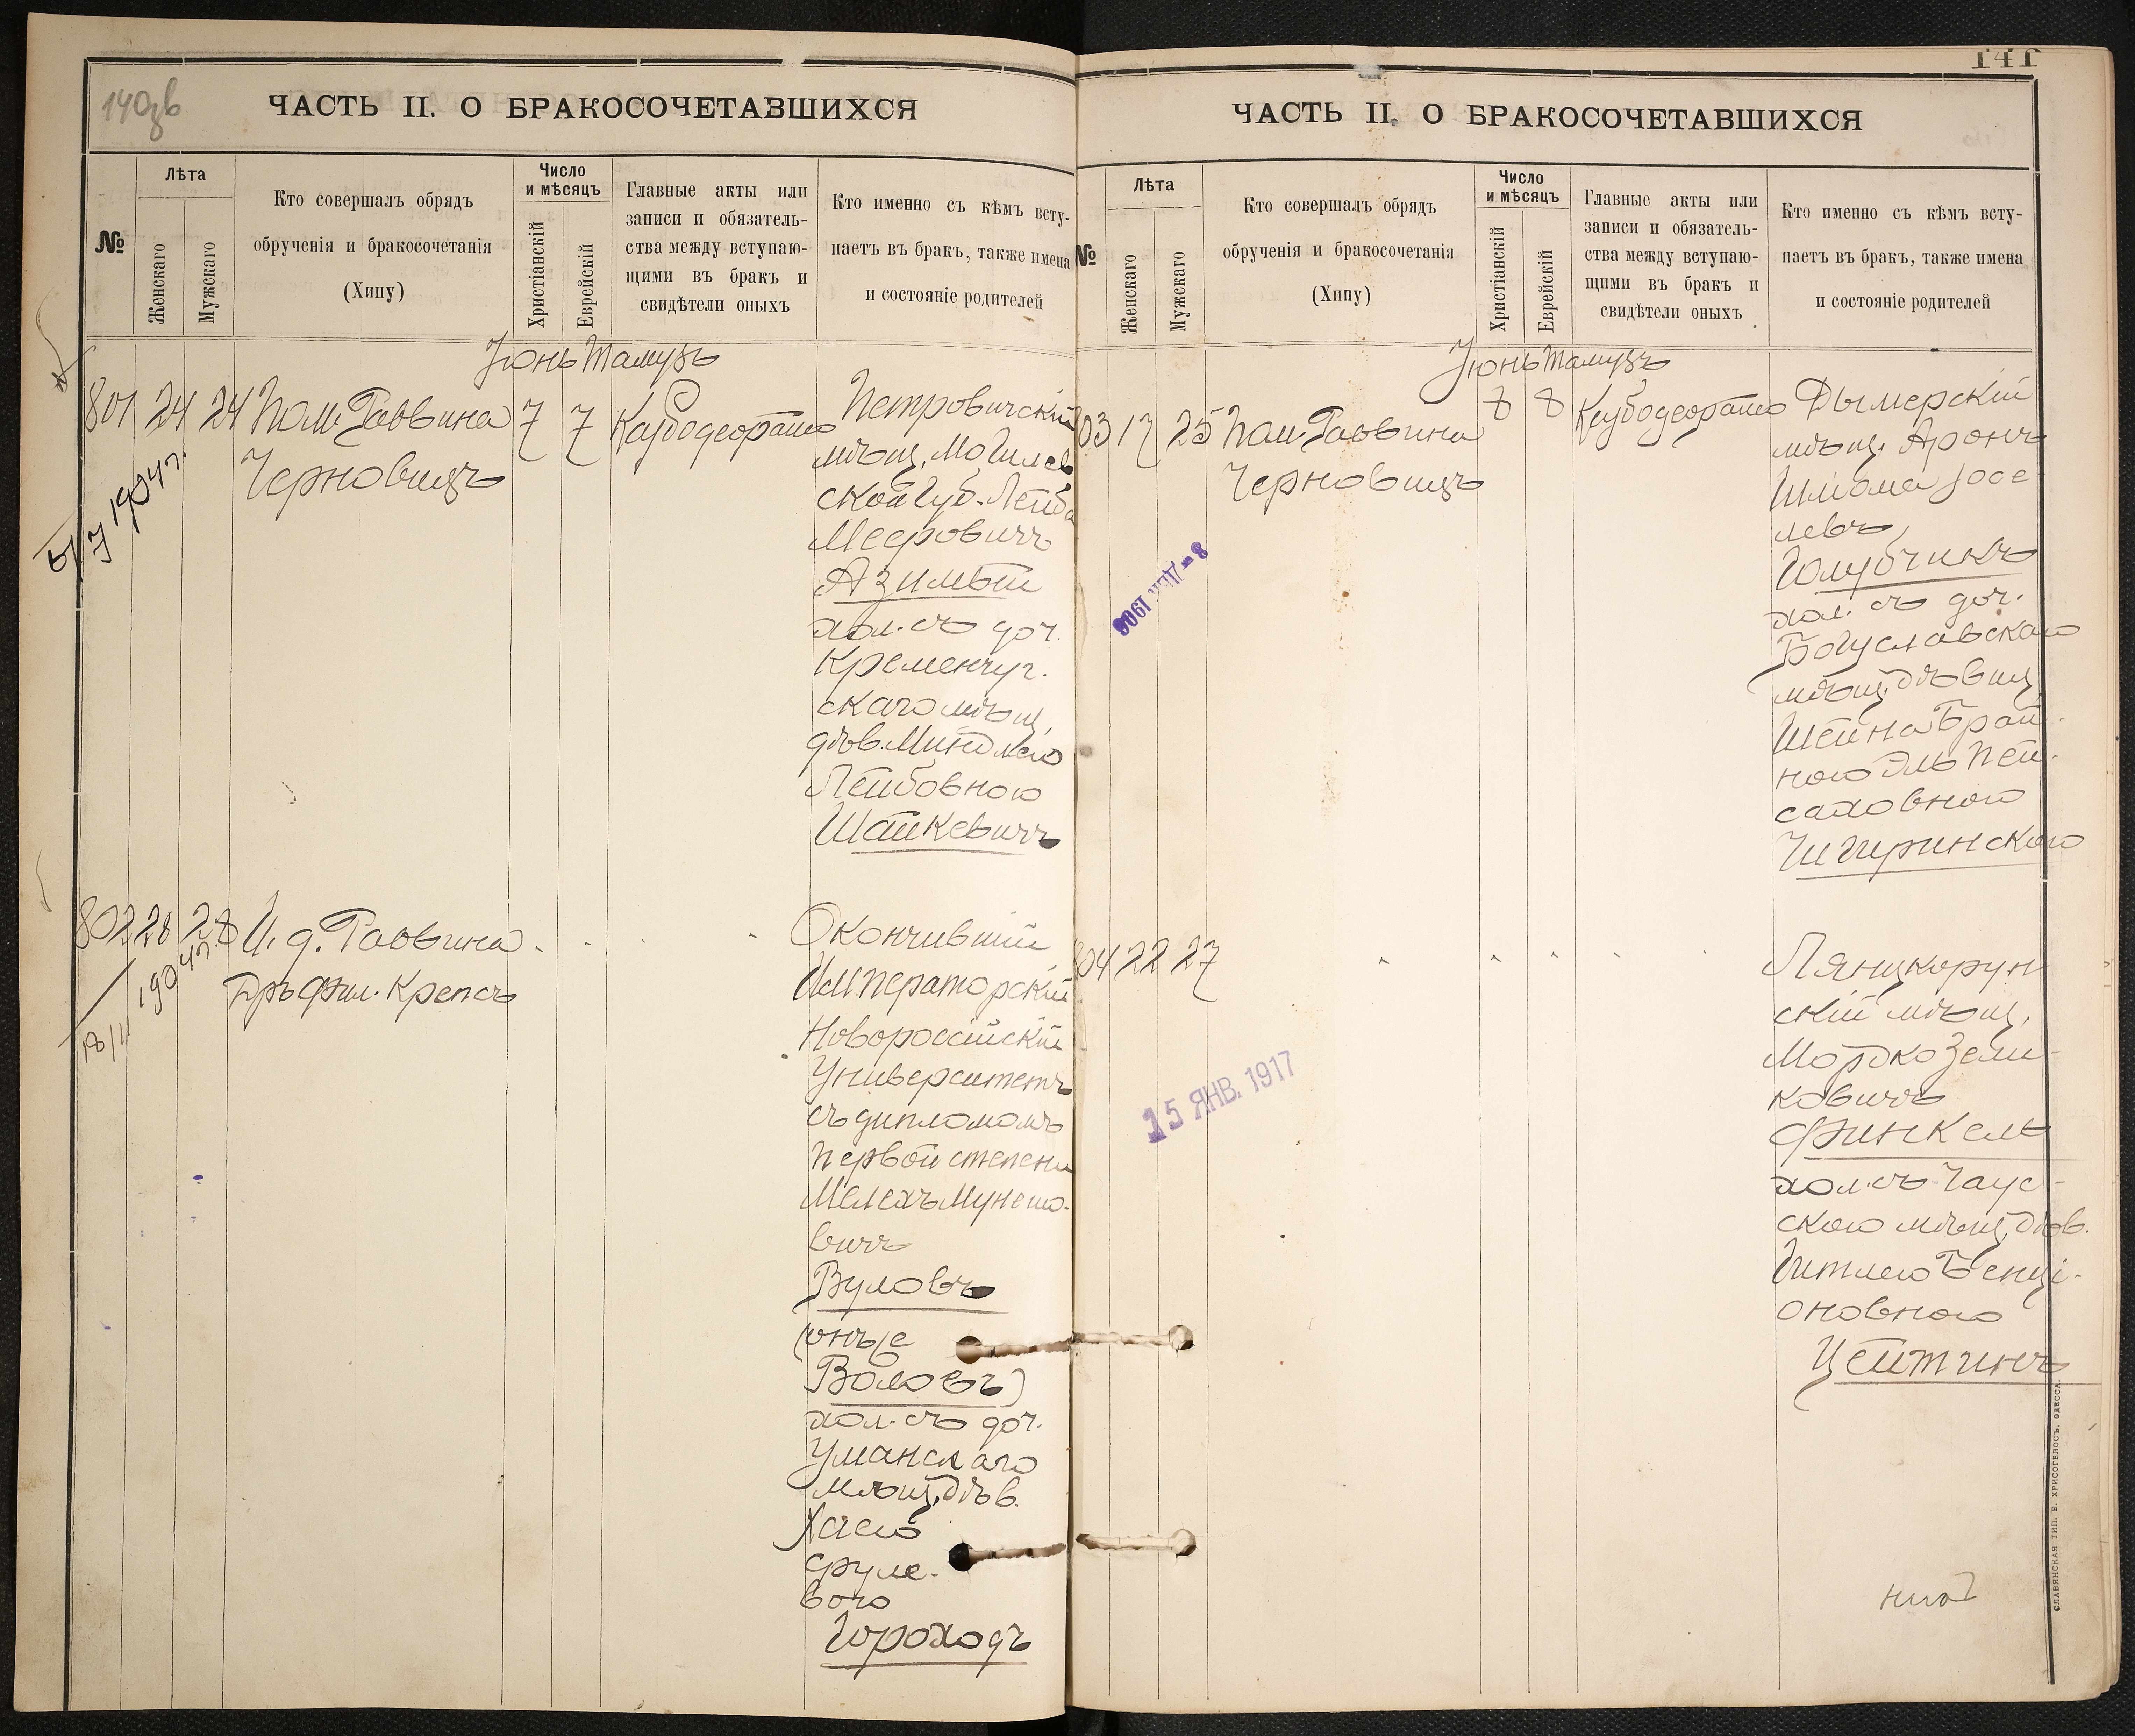 140зв
ЧАСТЬ II. О БРАКОСОЧЕТАВШИХСЯ
№
Лѣта
Женскаго
Мужскаго
Кто совершалъ обрядъ
обрученія и бракосочетанія
(Хипу)
Число
и мѣсяцъ
Христіанскій
Еврейскій
Главные акты или
записи и обязатель-
ства между вступаю-
щими въ бракъ и
свидѣтели оныхъ
Кто именно съ кѣмъ всту-
паетъ въ бракъ, также имена
и состояніе родителей
Іюнь Тамузъ
801 24 24 Пом. Раввина 7 7
Черновицъ
1904 г.
Петровичскій
мѣщ. Могилев
ской губ. Лейба
Мееровичъ
Азимовъ
хол. съ доч.
Кременчуг.
скаго мѣщ.
дѣв. Миндлею
Лейбовною
Шайкевичъ
802 28 28 И. д. Раввина
Дръ Фил. Крепсъ
18/II 1904 г.
Окончившій
Императорскій
Новороссійскій
Университетъ
съ дипломомъ
первой степени
Мелехъ
вичъ
Вуловъ
(онъ же
Воловъ)
хол. съ доч.
Уманскаго
мѣщ. дѣв.
Хаею
Сруле-
вою
Гороходъ
141
ЧАСТЬ II. О БРАКОСОЧЕТАВШИХСЯ
№
Лѣта
Женскаго
Мужскаго
Кто совершалъ обрядъ
обрученія и бракосочетанія
(Хипу)
Число
и мѣсяцъ
Христіанскій
Еврейскій
Главные акты или
записи и обязатель-
ства между вступаю-
щими въ бракъ и
свидѣтели оныхъ
Кто именно съ кѣмъ всту-
паетъ въ бракъ, также имена
и состояніе родителей
Іюнь Тамузъ
803 17 25 Пом. Раввина 8 8
Черновицъ
Дымерскій
мѣщ. Аронъ
Шліома Іосе
левъ
Голубчикъ
хол. съ доч.
Богуславскаго
мѣщ. дѣвиц.
Шейна Брай-
ною Эль Пей-
саховною
Чигиринскою
804 22 27
15 ЯНВ. 1917
Лянцкорун
скій мѣщ.
Мордко Зели-
ковичъ
Финкель
хол. съ Чаус-
скою мѣщ. дѣв.
Гитлею Бенці-
оновною
Цейтинъ
СЛАВЯНСКАЯ ТИП. Е. ХРИСОГЕЛОСЪ, ОДЕССА.